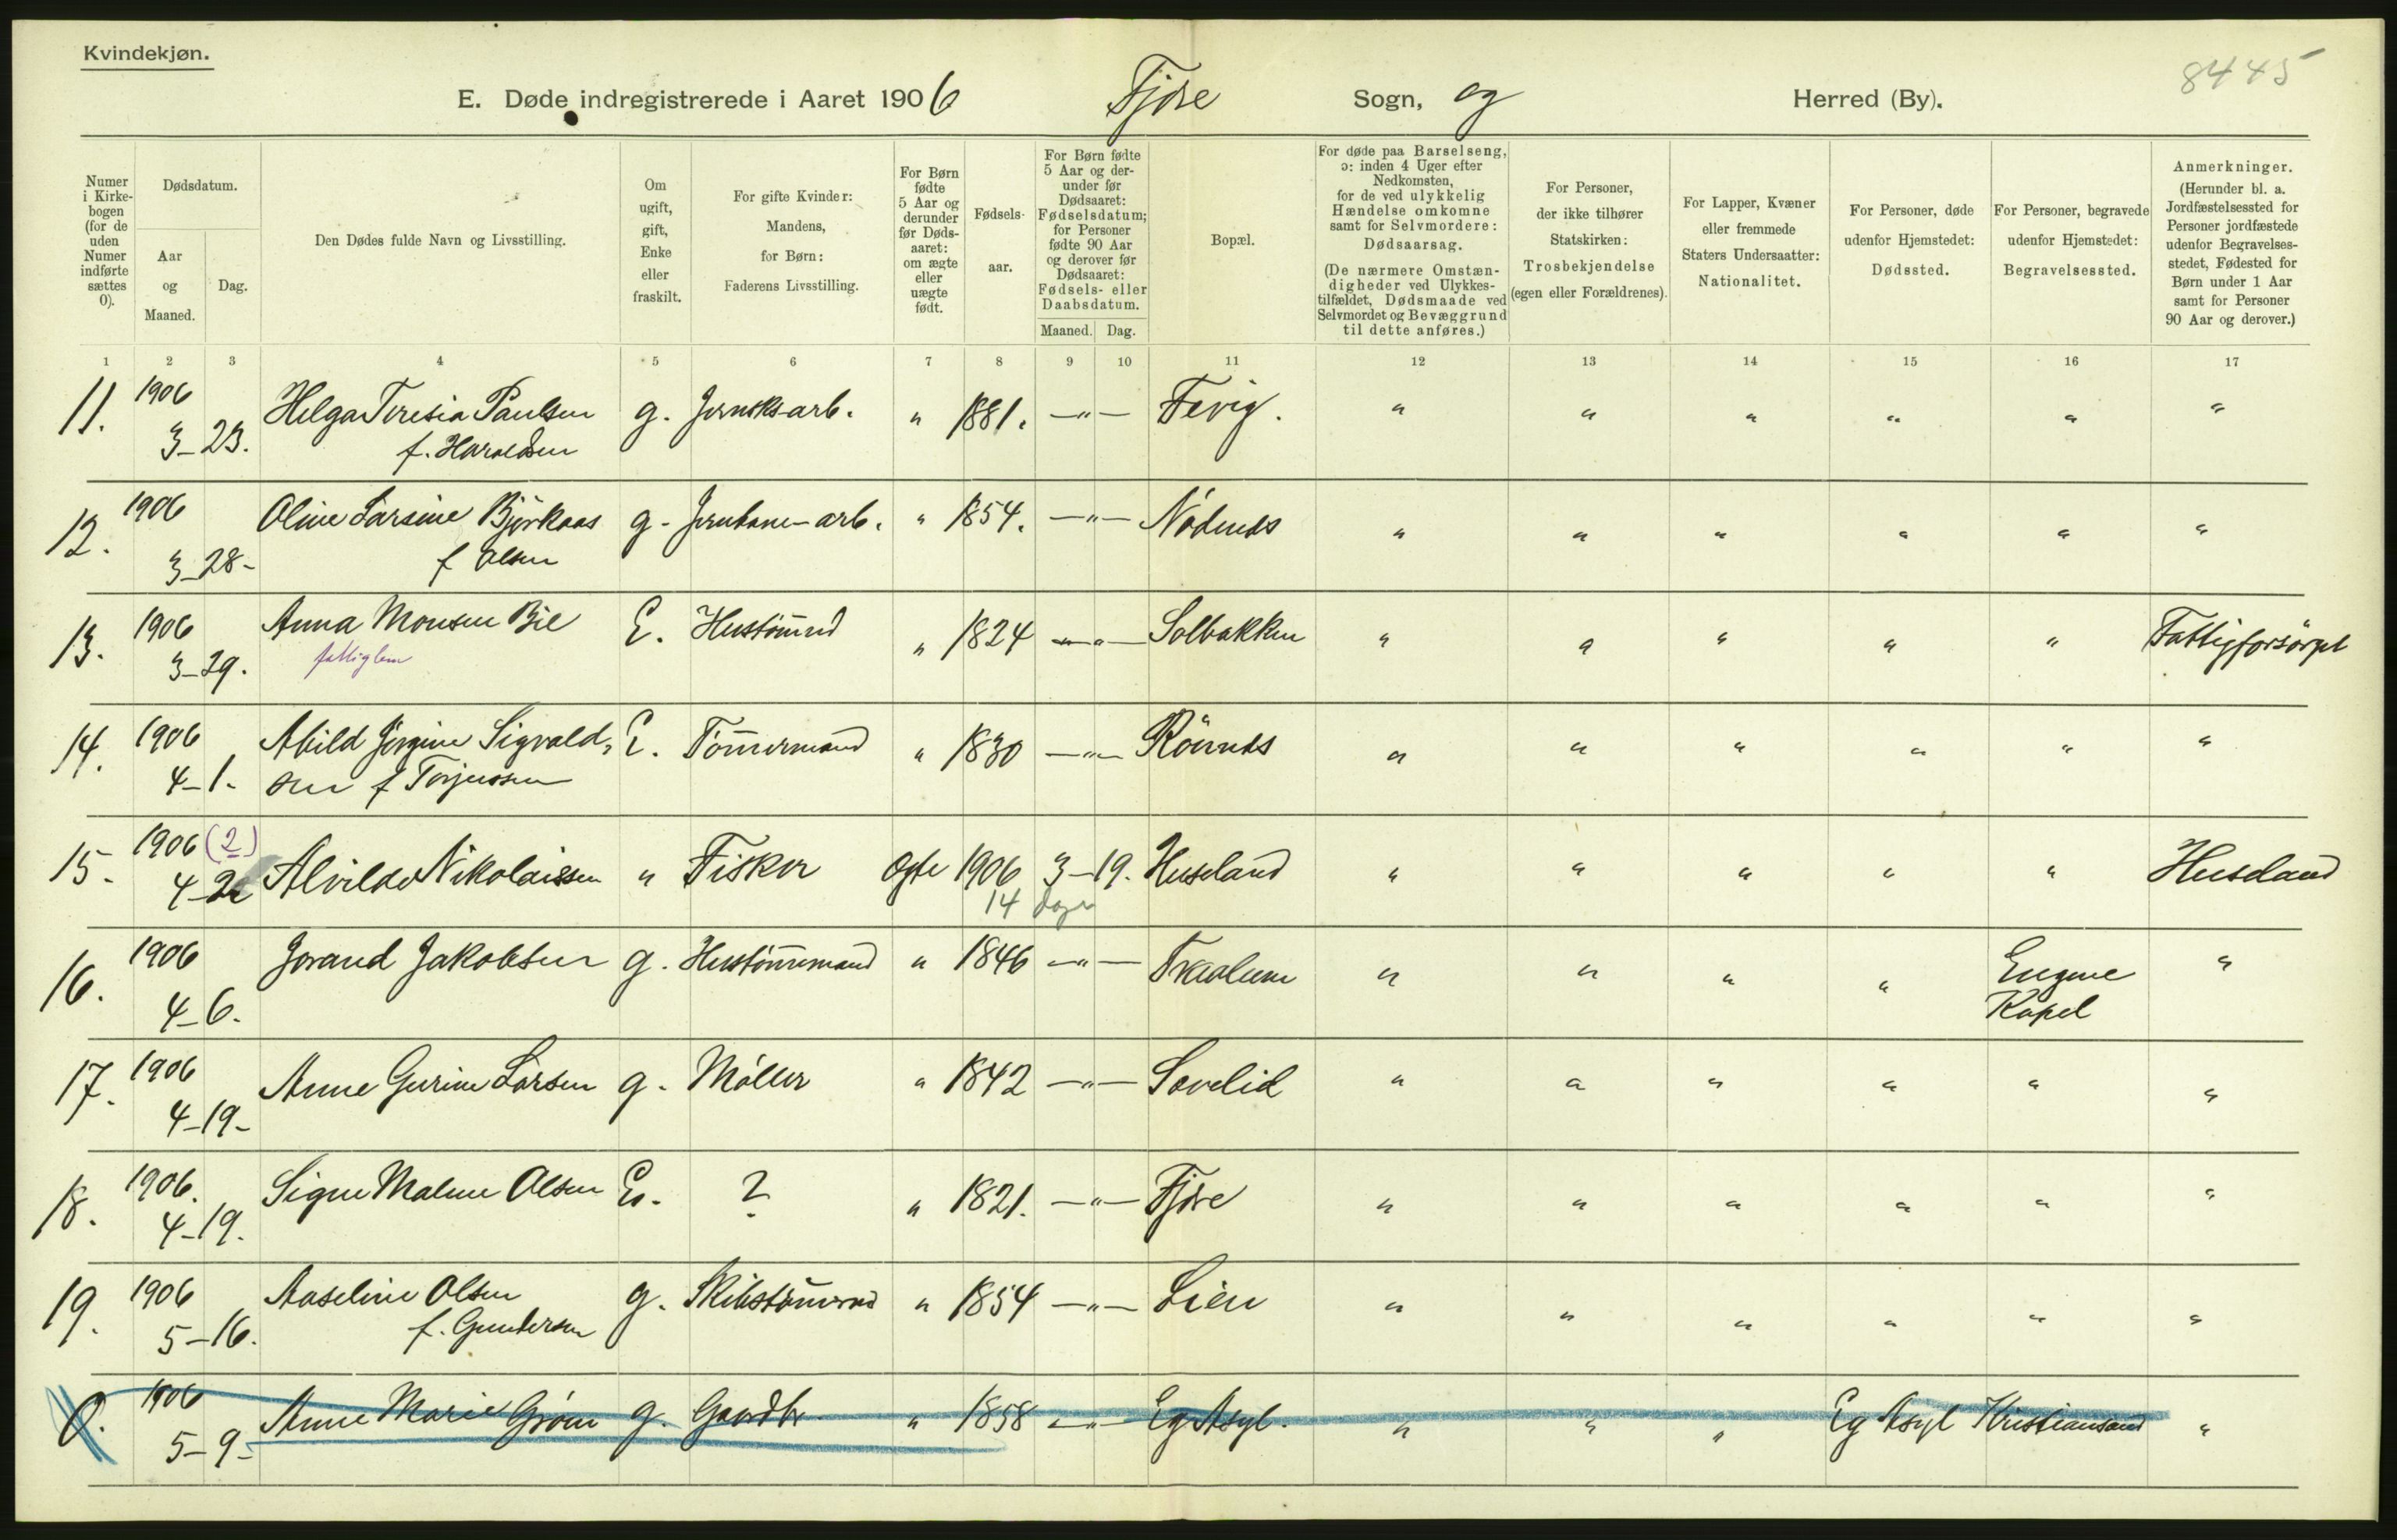 Kvindekjøn.
8445
E. Døde indregistrerede i Aaret 1906 Fjære Sogn, og Herred (By).
Numer i Kirkebogen (for de uden Numer indførte sættes 0).
Dødsdatum.
Aar og Maaned.
Dag.
Den Dødes fulde Navn og Livsstilling.
Om ugift, gift, Enke eller fraskilt.
For gifte Kvinder: Mandens, for Børn: Faderens Livsstilling.
For Børn fødte 5 Aar og derunder før Dødsaaret: om ægte eller uægte født.
Fødselsaar.
For Børn fødte 5 Aar og derunder før Dødsaaret: Fødselsdatum; for Personer fødte 90 Aar og derover før Dødsaaret: Fødsels- eller Daabsdatum.
Maaned. Dag.
Bopæl.
For døde paa Barselseng, ɔ: inden 4 Uger efter Nedkomsten, for de ved ulykkelig Hændelse omkomne samt for Selvmordere: Dødsaarsag. (De nærmere Omstændigheder ved Ulykkestilfældet, Dødsmaade ved Selvmordet og Bevæggrund til dette anføres.)
For Personer, der ikke tilhører Statskirken: Trosbekjendelse (egen eller Forældrenes).
For Lapper, Kvæner eller fremmede Staters Undersaatter: Nationalitet.
For Personer, døde udenfor Hjemstedet: Dødssted.
For Personer, begravede udenfor Hjemstedet: Begravelsessted.
Anmerkninger. (Herunder bl. a. Jordfæstelsessted for Personer jordfæstede udenfor Begravelsesstedet, Fødested for Børn under 1 Aar samt for Personer 90 Aar og derover.)
1 2 3 4 5 6 7 8 9 10 11 12 13 14 15 16 17
11. 1906 3-23. Helga Teresia Paulsen g. Jernsksarb. " 1881. —"— Fevig. " " " " " "
f. Haraldsen
12. 1906 3-28- Oline Larsine Bjørkaas g- Jernbane-arb. " 1854. —"— Nødenes " " " " " "
f Olsen
13. 1906 3-29. Anna Monsen Bie E. Hustømmd " 1824 —"— Solbakken " " " " " Fattigforsørget
fattiglem
14. 1906 4-1. Abild Jørgine Sigvald- E. Tømmermand " 1830 —"— Rønnes " " " " " "
sen f Torjussen
15. 1906 (2) 4-2 Alvilde Nikolaissen " Fisker Ægte 1906 3-19. Huseland " " " " " Huseland
14 dage
16. 1906 4-6. Jorand Jakobsen g. Hustømmermand " 1846 —"— " " " " Engene Kapel "
17. 1906 4-19- Anne Gurine Larsen g. Møller " 1842 —"— Sørelid " " " " " "
18. 1906. 4-19. Signe Malene Olsen E. ? " 1821. —"— Fjære " " " " " "
19. 1906 5-16. Aaseline Olsen g. Skibstømmrmd " 1854 —"— Lien " " " " " "
f. Gundersen
0. 1906 5-9- Anne Marie Grøm g. Gaardbr. " 1858 —"— Eg Asyl. " " " Eg Asyl Kristiansand "